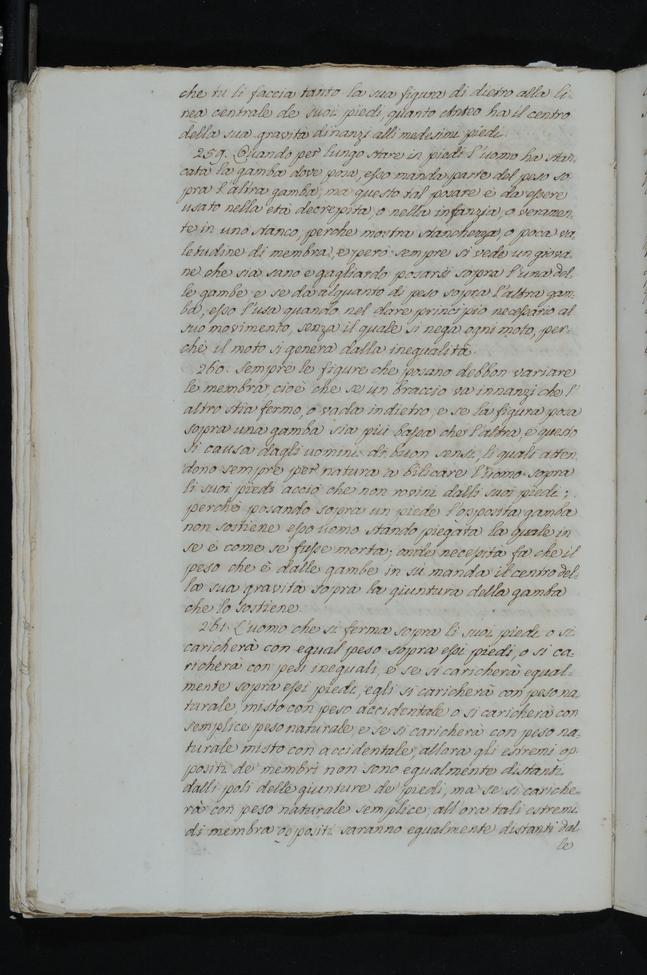 che tu li faccia tanto la sua figura di dietro alla li-
nea centrale de suoi piedi, quanto Anteo ha il centro
della sua gravità dinanzi alli medesimi piedi.
259. Quando per lungo stare in piedi l'uomo ha stan-
cata la gamba dove posa, esso manda parte del peso so-
pra l'altra gamba, ma questo tal posare è da essere
usato nella età decrepita, o nella infanzia, o veramen-
te in uno stanco, perche mostra stanchezza, o poca va
letudine di membra, e però sempre si vede un giova-
ne che sia sano e gagliardo posarsi sopra l'una del-
le gambe e se da alquanto di peso sopra l'altra gam-
ba, esso l'usa quando nel dare principio necessario al
suo movimento, senza il quale si nega ogni moto, per-
chè il moto si genera dalla inequalità.
260. Sempre le figure che posano debbon variare
le membra, cioè che se un braccio va innanzi che l'
altro stia fermo, o vada indietro, e se la figura posa
sopra una gamba sia più bassa che l'altra, e questo
si causa dagli uomini di buon sensi, li quali atten
dono sempre per natura a bilicare l'uomo sopra
li suoi piedi acciò che non rovini dalli suoi piedi;
perchè posando sopra un piede l'opposita gamba
non sostiene esso uomo stando piegata la quale in
se è come se fusse morta; onde necessità fa che il
peso che è dalle gambe in sù manda il centro del-
la sua gravità sopra la giuntura della gamba
che lo sostiene.
261. L'uomo che si ferma sopra li suoi piedi o si
caricherà con equal peso sopra essi piedi, o si ca-
richerà con pesi inequali, e se si caricherà equal-
mente sopra essi piedi, egli si caricherà con peso na
turale, misto con peso accidentale o si caricherà con
semplice peso naturale, e se si caricherà con peso na-
turale misto con accidentale, allora gli estremi op-
positi de membri non sono egualmente distanti
dalli poli delle giunture de piedi, ma se si cariche-
rà con peso naturale semplice, allora tali estremi
di membra oppositi saranno egualmente distanti dal-
le